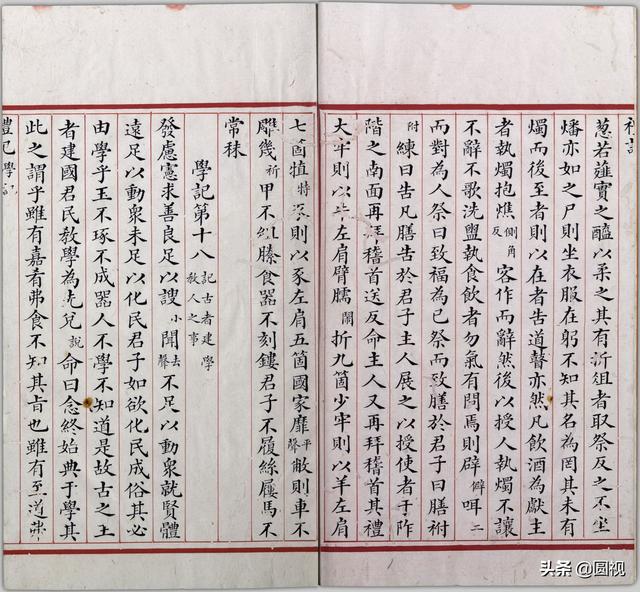 蔥若薤實之醯以柔之其有沂俎者取祭反之不坐
燔亦如之尸則坐衣服在躬不知其名為罔其未有
燭而後至者則以在者告道瞽亦然凡飲酒為獻主
者執燭抱燋側角反客作而辭然後以授人執燭不讓
不辭不歌洗盥執食飲者勿氣有問焉則辟僻咡二
而對為人祭曰致福為已祭而致膳於君子曰膳祔
附練曰告凡膳告於君子主人展之以授使者于阼
階之南面再拜稽首送反命主人又再拜稽首其禮
大牢則以牛左肩臂臑鬧折九箇少牢則以羊左肩
七箇犆特豕則以豕左肩五箇國家靡平聲敝則車不
雕幾祈甲不組縢食器不刻鏤君子不履絲屨馬不
常秣
學記第十八記古者建學教人之事
發慮憲求善良足以謏小聞去聲不足以動衆就賢體
遠足以動衆未足以化民君子如欲化民成俗其必
由學乎玉不琢不成器人不學不知道是故古之王
者建國君民教學為先兌說命曰念終始典于學其
此之謂乎雖有嘉肴弗食不知其旨也雖有至道弗
禮記 學記
头条 @圆视